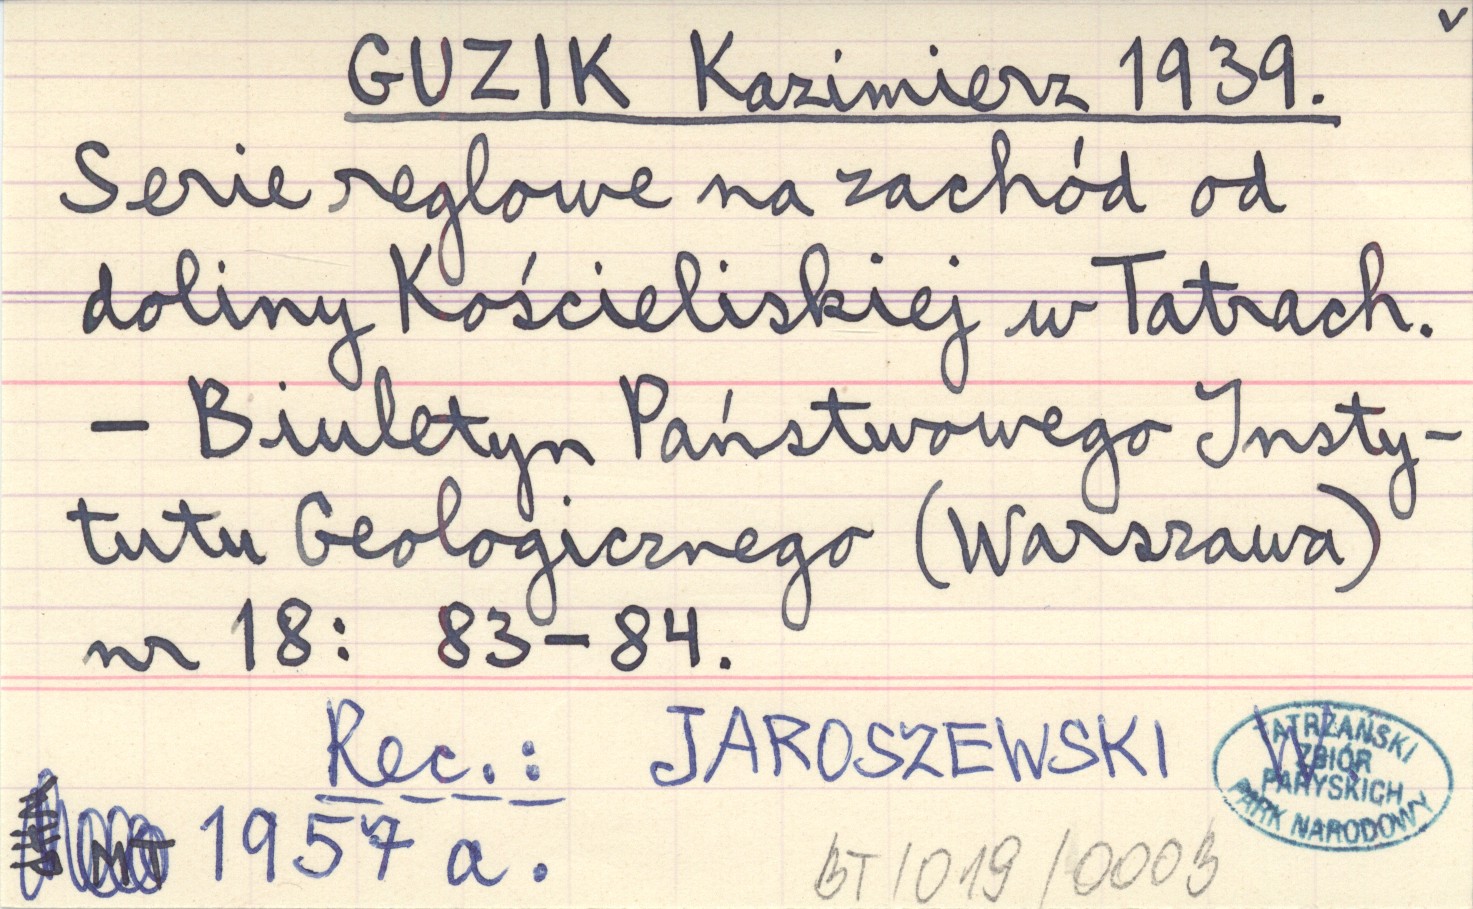 v
GUZIK Kazimierz 1939.
Serie reglowe na zachód od
doliny Kościeliskiej w Tatrach.
– Biuletyn Państwowego Insty-
tutu Geologicznego (Warszawa)
nr 18: 83–84.
Rec.: JAROSZEWSKI W.
1957 a.
MT
TATRZAŃSKI
ZBIÓR
PARYSKICH
PARK NARODOWY
BT/019/0003